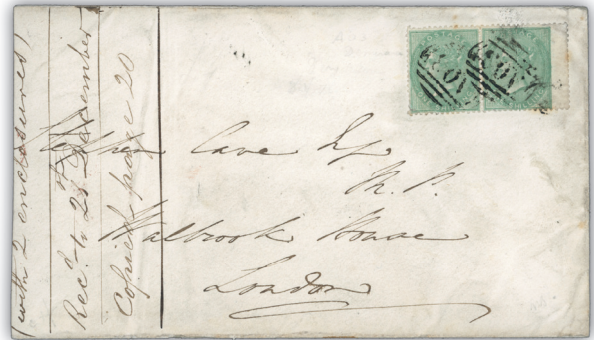 (with 2 enclosures)
Recd. 28th December
Copied page 20
Stephen Cave Esq
M. P.
Walbrook House
London